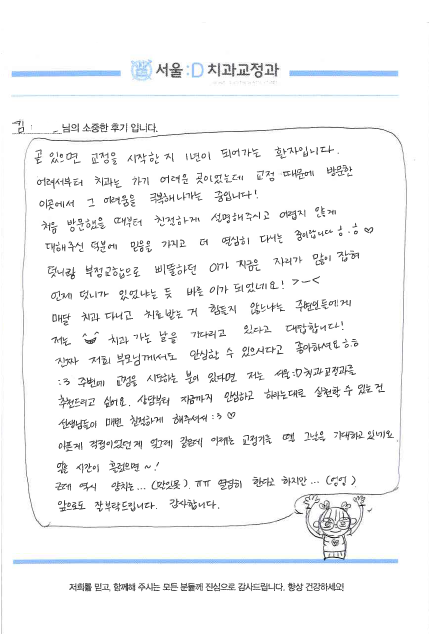 서울:D 치과교정과
김 :      님의 소중한 후기 입니다.
곧 있으면 교정을 시작한지 1년이 되어가는 환자입니다.
어려서부터 치과는 가기 어려운 곳이었는데 교정 때문에 방문한
이곳에서 그 어려움을 극복해나가는 중입니다!
처음 방문했을 때부터 친절하게 설명해주시고 어렵지 않게
대해주신 덕분에 믿음을 가지고 더 열심히 다니는 중이랍니다 ㅎ.ㅎ ♡
덧니랑 부정교합으로 삐뚤하던 이가 지금은 자리가 많이 잡혀
언제 덧니가 있었냐는 듯 바른 이가 되었네요! >~<
매달 치과 다니고 치료받는 거 힘들지 않느냐는 주변인들에게
저는 치과 가는 날을 기다리고 있다고 대답합니다!
진짜 저희 부모님께서도 안심할 수 있으시다고 좋아하셔요ㅎㅎ
:3 주변에 교정을 시도하는 분이 있다면 저는 서울:D치과교정과를
추천드리고 싶어요. 상담부터 지금까지 안심하고 하라는대로 실천할 수 있는건
선생님들이 매번 친절하게 해주셔서 :3 ♡
아픈게 걱정이었던게 엊그제 같은데 이제는 교정기를 뗄 그날을 기대하고 있네요.
얼른 시간이 흘렀으면 ~!
근데 역시 양치는... (말잇못). ㅠㅠ 열심히 한다고 하지만... (엉엉)
앞으로도 잘 부탁드립니다. 감사합니다.
저희를 믿고, 함께해 주시는 모든 분들께 진심으로 감사드립니다. 항상 건강하세요!